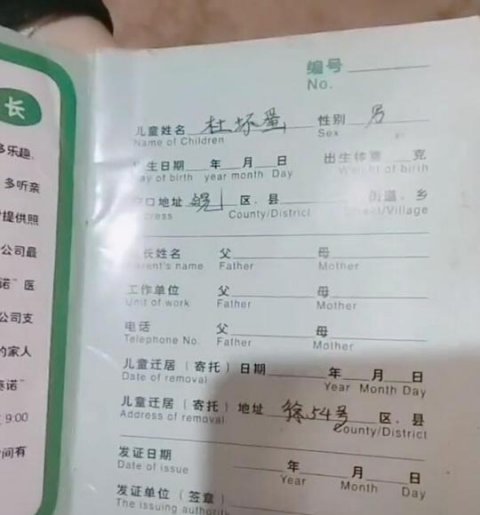 长
多乐趣.
多听亲
提供照
公司最
诺”医
公司支
的家人
赛诺”
9:00
间有
编号
No.
儿童姓名 杜坏蛋 性别 男
Name of Children Sex
生日期 年 月 日 出生体重 克
Day of birth year month Day Weight of birth
户口地址 区、县 街道、乡
County/District Street/Village
长姓名 父 母
Parent's name Father Mother
工作单位 父 母
Unit of work Father Mother
电话 父 母
Telephone No. Father Mother
儿童迁居（寄托）日期 年 月 日
Date of removal Year Month Day
儿童迁居（寄托）地址 徐54号 区、县
Address of removal County/District
发证日期 年 月 日
Date of issue Year Month Day
发证单位（签章）
The issuing authority